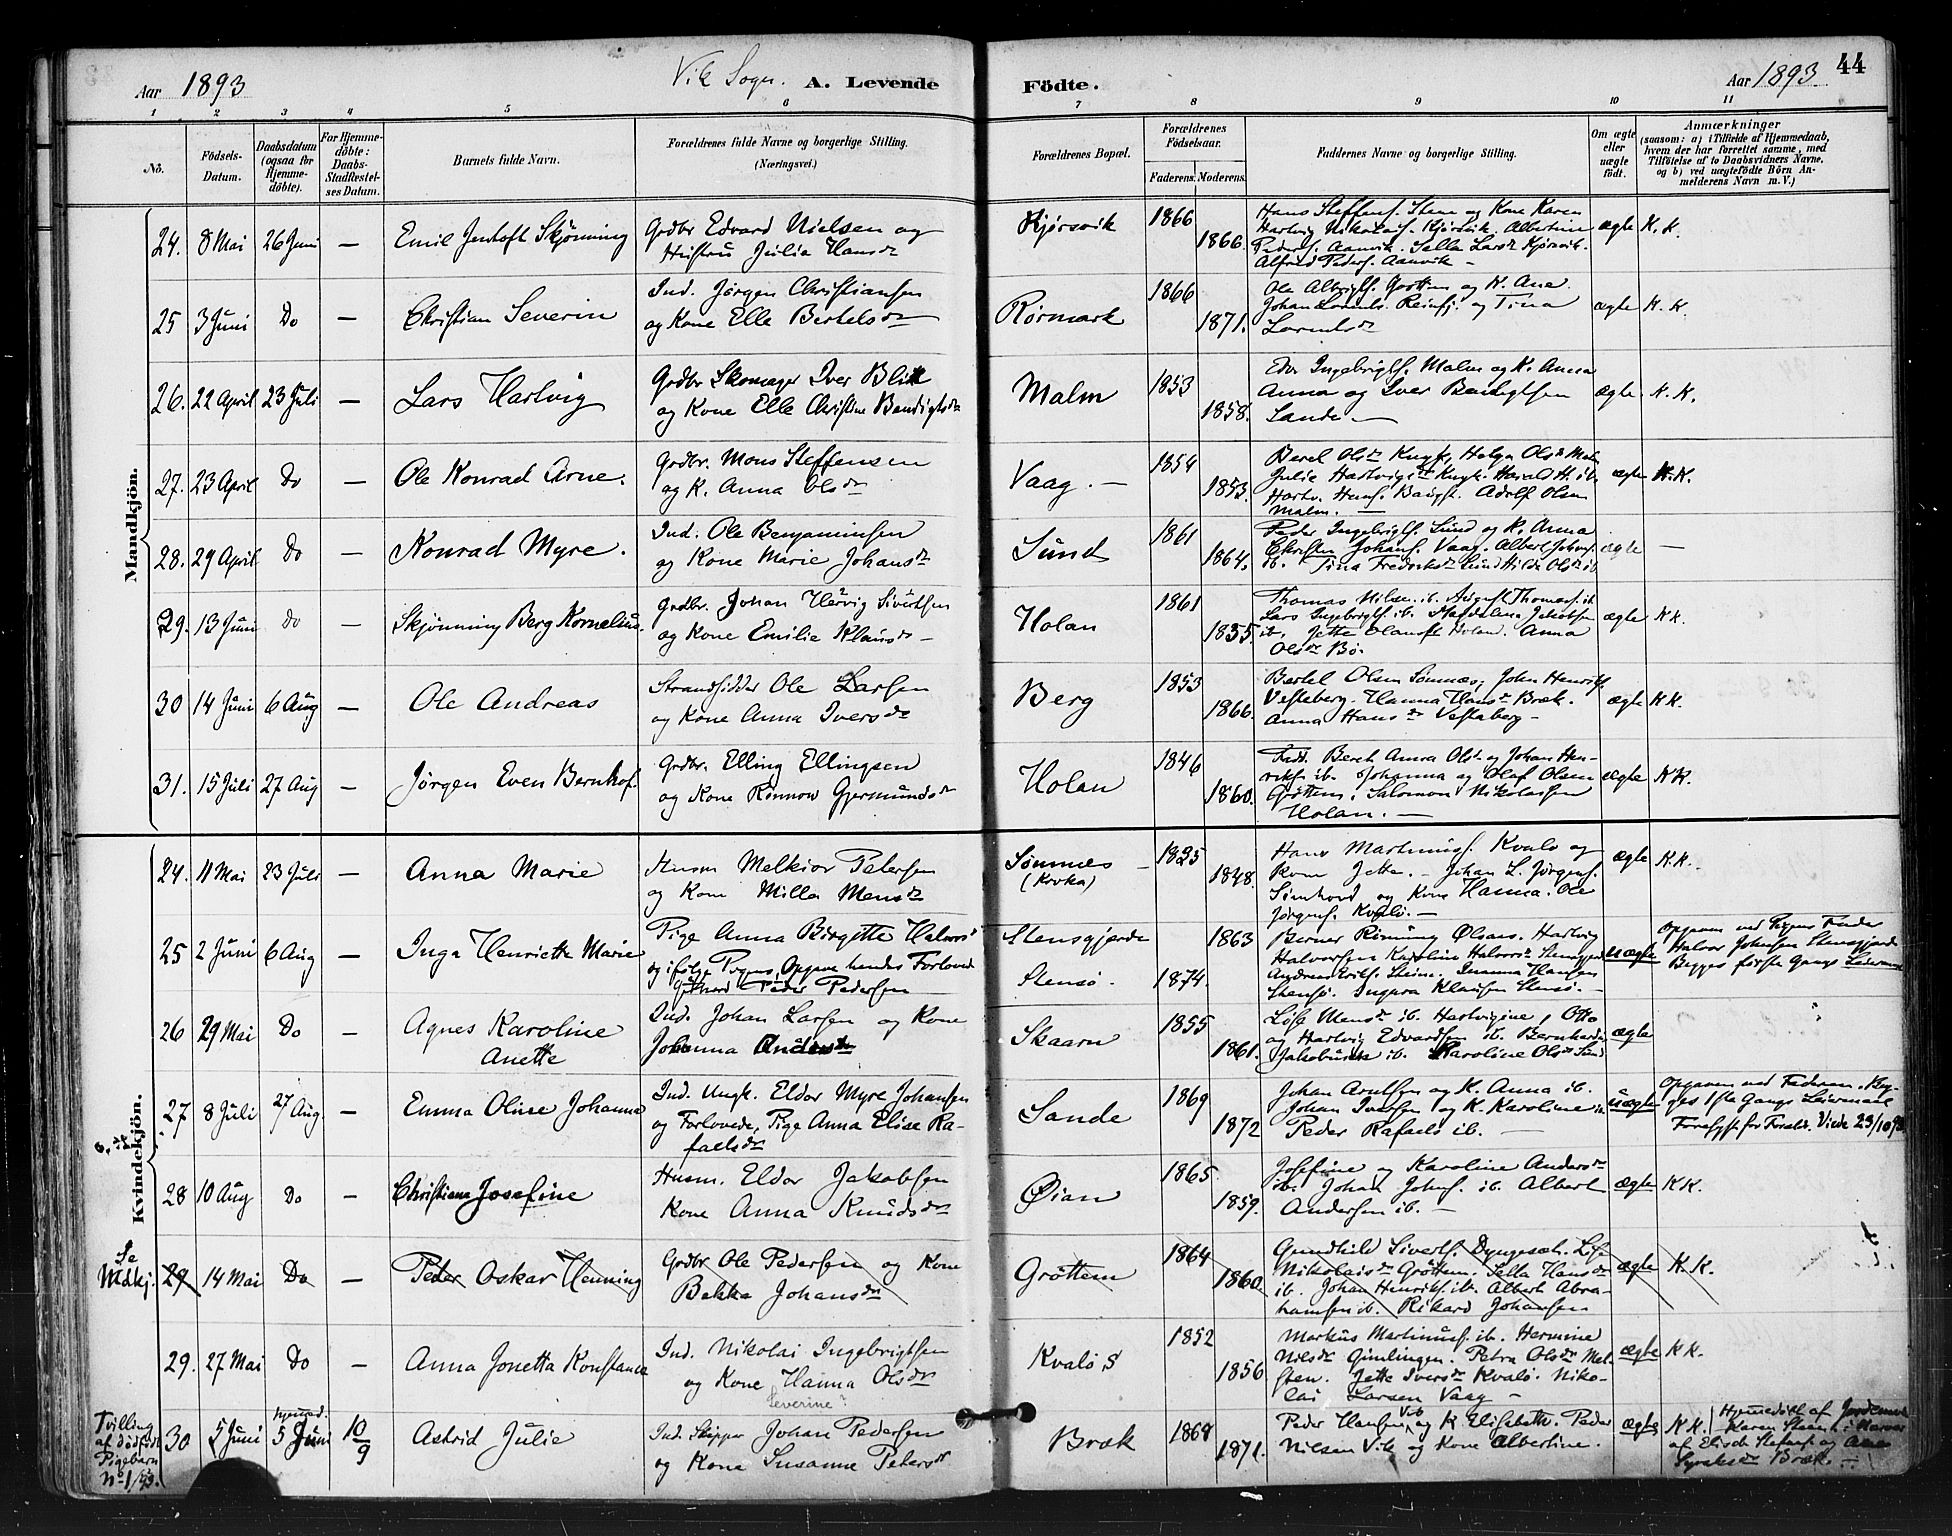 Aar 1893
Vik Sogn. A. Levende Födte.
Aar 1893
44
1 2 3 4 5 6 7 8 9 10 11
No.
Födsels-Datum.
Daabsdatum (ogsaa for Hjemme-döbte).
For Hjemme-döbte: Daabs-Stadfæstel-ses Datum.
Barnets fulde Navn.
Forældrenes fulde Navne og borgerlige Stilling. (Næringsvei.)
Forældrenes Bopæl.
Forældrenes Födselsaar.
Faderens. Moderens.
Faddernes Navne og borgerlige Stilling.
Om ægte eller uægte födt.
Anmærkninger
(saasom: a) i Tilfælde af Hjemmedaab,
hvem der har forrettet samme, med
Tilföielse af to Daabsvidners Navne,
og b) ved uægtefödte Börn An-
melderens Navn m. V.)
Mandkjön.
24. 8 Mai 26 Juni — Emil Jenhoft Skjönning
Grdbr Edvard Nielsen og
Hustru Julia Hansdr
Kjörsvik 1866 1866.
Hans Steffens. Stene og Kone Karen
Hartvig Nikolais. Kjörsvik. Albertine
Peders. Aanvik. Sella Larsdr Kjörsvik.
Alfred Peders. Aanvik —
ægte K. K.
25 3 Juni Do — Christian Severin
Ind. Jörgen Christiansen
og Kone Elle Bertelsdr
Rörmark 1866 1871.
Ole Albrigts. Gröttem og K. Ane.
Johan Lornts. Reinfj. og Tina
Lorntsdr
ægte K. K.
26. 22 April 23 Juli — Lars Hartvig
Grdbr Skomager Iver Blik
og Kone Elle Christine Bendigtsdr
Malm 1853 1858.
Edv Ingebrigts. Malm og K. Anna
Anna og Iver Bendigtsen
Sande —
ægte. K. K.
27. 23 April Do — Ole Konrad Arne.
Grdbr. Mons Steffensen
og K. Anna Olsdr
Vaag. — 1854 1853.
Berel Olsdr Helga Olsdr Malm
Julie Hartvigsdr Harald H. ib.
Hartv. Hans. Adolf Olsen
Malm. —
ægte K. K.
28. 29 April Do — Konrad Myre.
Ind. Ole Benjaminsen
og Kone Marie Johansdr
Sund 1861 1864.
Peder Ingebrigts. Sund og K. Anna
Christen Johans. Vaag. Albert Johns.
ib. Tina Frederiksdr Sund Hilda Olsdr ib
ægte —
29. 13 Juni Do — Skjönning Berg Kornelius.
Grdbr. Johan Hervig Sivertsen
og Kone Emilie Klausdr —
Holan 1861 1855.
Thomas Nilsen ib. August Thomas. ib
Lars Ingebrigts ib. Magdalena Jakobsen
ib. Jette Olausdr Holan. Anna
Olsdr Bö.
ægte K K.
30 14 Juni 6 Aug — Ole Andreas
Strandsidder Ole Larsen
og Kone Anna Iversdr
Berg 1853 1866.
Bertel Olsen Sömnæs, John Henriks.
Vestaberg. Hanna Hansdr Bræk.
Anna Hansdr Vestaberg —
ægte K K.
31. 15 Juli 27 Aug — Jörgen Even Bernhof.
Grdbr. Elling Ellingsen
og Kone Rönnow Gjermundsdr
Holan 1846 1860.
Fadd. Beret Anna Olsd. og Johan Hen-
riks. ib. Johanna og Olaf Olsen
Gröttem. Salomon Nikolaisen
Holan. —
ægte K K.
Kvindekjön.
24. 11 Mai 23 Juli — Anna Marie
Husm Melkior Petersen
og Kone Milla Monsdr
Sömnæs — (Kroka) 1835 1848.
Hans Martinus. Kvalö og
Kone Jette. — Johan L. Jörgens.
og Kone Hanna. Ole
Jörgens. Kvalö. —
ægte K. K.
25 2 Juni 6 Aug — Inga Henriette Marie
Pige Anna Birgette Halvorsd
og ifölge Pigens Opgave hendes Forlovede
Peder Pedersen
Stensgjerde 1863
Stensö. 1874.
Berner Olsen. Hartvig
Halvorsen Karoline Halvorsdr Stensgjerde
Andreas Eriks. Johanna Hansen
Stensö. Ingvara Klausen Stensö. —
uægte
Opgaven ved Pigens Fader
Halvor Johnsen Stensgjerde
Begges förste Gangs Leiermaal
26 29 Mai Do — Agnes Karoline
Anette
Ind. Johan Larsen og Kone
Johanna Andersdr
Skaarn 1855 1861.
Lise Monsdr ib. Hartvigine, Otto
og Hartvig Edvardsen ib. Bernhardine
Jakobsdr ib. Karoline Olsdr Sund
ægte
27 8 Juli 27 Aug. — Emma Oline Johanna
Ind. Ungk. Eldor Myre Johansen
og Forlovede, Pige Anna Elise Ra-
faelsdr
Sande 1869 1872
Johan Arntsen og K. Anna ib.
Johan Iversen og K. Karoline ib
Peder Rafaels ib. —
uægte
Opgaven ved Faderen. Beg-
ges 1ste Gangs Leiermaal
28 10 Aug Do — Christiane Josefine
Husm. Eldor Jakobsen
Kone Anna Knudsdr
Öian 1865. 1859.
Josefine og Karoline Andersdr
ib. Johan Johns. ib. Albert
Andersen ib. —
ægte K K.
Se Mdkj. 29 14 Mai Do — Peder Oskar Henning
Grdbr Ole Pedersen og Kone
Bekka Johansdr
Gröttem 1864 1860.
Gundhild Siverts. Dyngesæt. Lise
Nikolaisdr Gröttem. Sella Hansdr
ib. Johan Henriks. ib. Albert Abra-
hamsen ib. Rikard Johansen
ægte K. K.
29. 27 Mai Do — Anna Jonetta Konstance
Ind. Nikolai Ingebrigtsen
og Kone Hanna Olsdr
Severine?
Kvalö 1852 1856
Markus Martinus. ib. Hermine
Nilsdr Gimlingen. Petra Olsdr Mel-
sten. Jette Iversdr Kvalö. Niko-
lai Larsen Vaag —
ægte K K.
Tvilling
af dödfödt
Pigebarn
No 1/93.
30 5 Juni hjemmed. 5 Juni 10/9 Astrid Julie
Ind. Skipper Johan Pedersen
og Kone Susanne Petersdr
Bræk 1868 1871.
Peder Hansen Vik og K Elisabeth. Peder
Nilsen Vik og Kone Albertine.
ægte K K.
Hjemmedöbt af Jordemor
Karen Steen i Nærvær
af Elisæ Stefans og Ane
Bræk. —